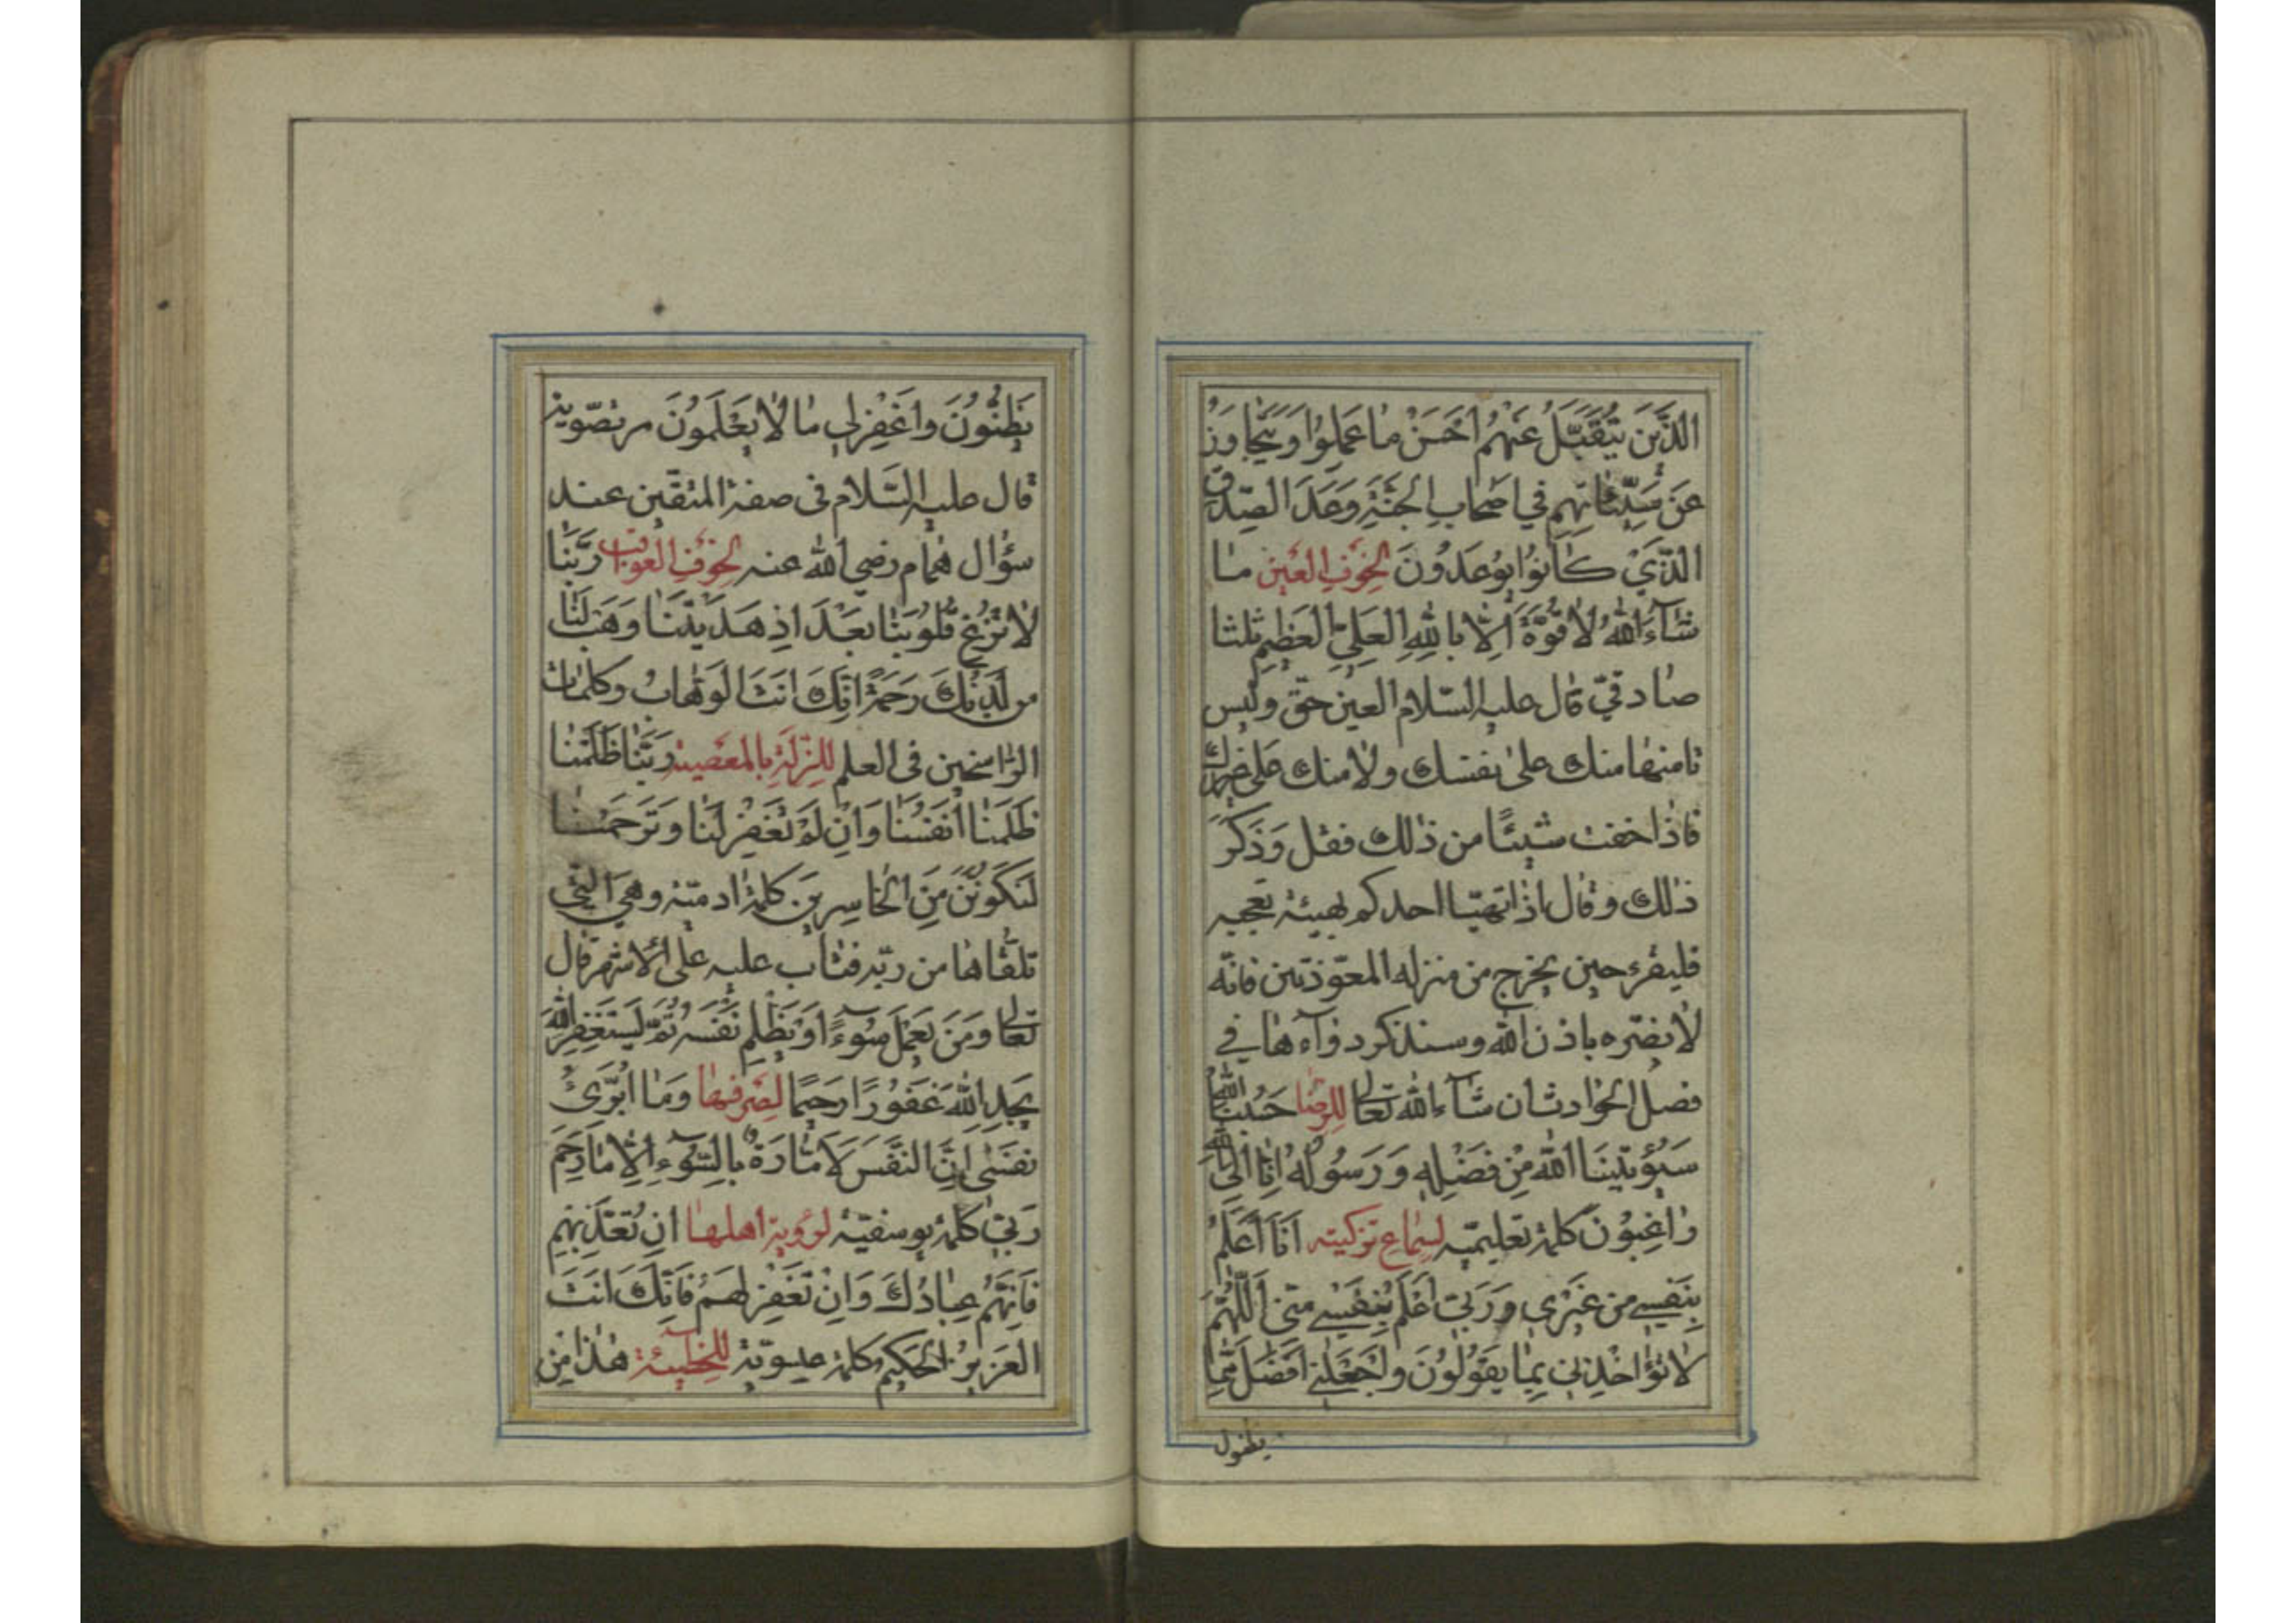 الَّذينَ يُتَقَبَّلُ عَنْهُمْ اَحْسَنُ مٰا عَمِلُوا وَيُتَجٰاوَزُ
عَنْ سَيِّئٰاتِهِمْ في اَصْحٰابِ الْجَنَّةِ وَعْدَ الصِّدْقِ
الَّذي كٰانُوا يُوعَدُونَ لِخَوْفِ الْعَيْنِ مٰا
شٰآءَ اللّٰهُ لٰا قُوَّةَ اِلّٰا بِاللّٰهِ الْعَلِيِّ الْعَظيمِ ثلثا
صٰادقيّ قال عليه السّلام العين حقّ وليس
تامنها منك على نفسك ولا منك على غيرك
فاذٰا خفت شيئًا من ذٰلك فقل وَذَكَرَ
ذٰلك وقال اذٰا تهيّا احدكم بهيئة تعجبه
فليقرء حين يخرج من منزله المعوّذتين فانّه
لٰا يضرّه باذن اللّٰه وسنذكر دوٰآءهٰا في
فصل الحوٰادث ان شٰآء اللّٰه تعالى للرّضٰا حَسْبُنَا اللّٰهُ
سَيُؤْتينَا اللّٰهُ مِنْ فَضْلِه وَرَسُولُهُ اِنّٰا اِلَى اللّٰهِ
رٰاغِبُونَ كلمة تعليميّه لسماع تزكيته اَنَا اَعْلَمُ
بِنَفْسي من غَيْري وَرَبّي اَعْلَمُ بِنَفْسي منّي اَللّٰهُمَّ
لا تُؤٰاخِذْني بِمٰا يَقُولُونَ وَاجْعَلْني اَفْضَلَ مِمّٰا
يظنون
يَظُنُّونَ وَاغْفِرْلي مٰا لٰا يَعْلَمُونَ مرتضويّة
قال عليه السّلام فى صفة المتّقين عند
سؤال همٰام رضي اللّٰه عنه لخوف العواقب رَبَّنٰا
لٰا تُزِغْ قُلُوبَنٰا بَعْدَ اِذْ هَدَيْتَنٰا وَهَبْ لَنٰا
مِن لَدُنْكَ رَحْمَةً اِنَّكَ اَنْتَ الْوَهّٰابُ وكلمات
الرّٰاسخين فى العلم للزّلّة بالمعصية رَبَّنٰا ظَلَمْنٰا
ظَلَمْنٰا اَنْفُسَنٰا وَاِنْ لَمْ تَغْفِرْ لَنٰا وَتَرْحَمْنٰا
لَنَكُونَنَّ مِنَ الْخٰاسِرينَ كلمة ادميّة وهي الّتي
تلقّٰاهٰا من ربّه فتٰاب عليه على الاشهر قال
تعالى وَمَنْ يَعْمَلْ سُوٓءًا اَوْ يَظْلِمْ نَفْسَهُ ثُمَّ يَسْتَغْفِرِ اللّٰهَ
يَجِدِ اللّٰهَ غَفُورًا رَحيمًا لصرفها وَمٰا اُبَرِّئُ
نَفْسي اِنَّ النَّفْسَ لَاَمّٰارَةٌ بِالسُّوٓءِ اِلّٰا مٰا رَحِمَ
رَبّي كلمة يوسفيّة لرؤية اهلهٰا اِنْ تُعَذِّبْهُمْ
فَاِنَّهُمْ عِبٰادُكَ وَاِنْ تَغْفِرْ لَهُمْ فَاِنَّكَ اَنْتَ
الْعَزيزُ الْحَكيمُ كلمة عيسويّة للخطيئة هٰذٰا مِنْ